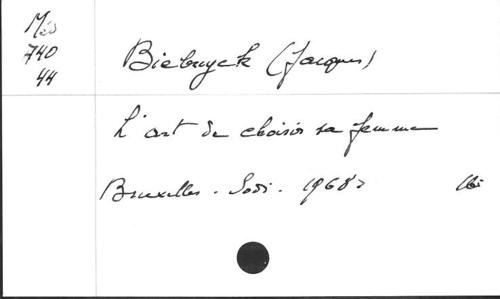 Més
740
44
Biebuyck (Jacques)
L'art de choisir sa femme
Bruxelles. Sodi. 1968.